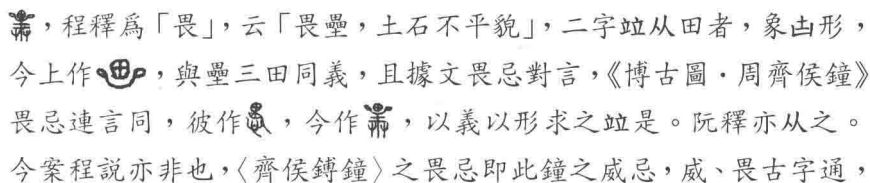 ，程釋爲「畏」，云「畏壘，土石不平貌」，二字竝从田者，象凷形，
今上作，與壘三田同義，且據文畏忌對言，《博古圖．周齊侯鐘》
畏忌連言同，彼作，今作，以義以形求之竝是。阮釋亦从之。
今案程說亦非也，〈齊侯鎛鐘〉之畏忌即此鐘之威忌，威、畏古字通，